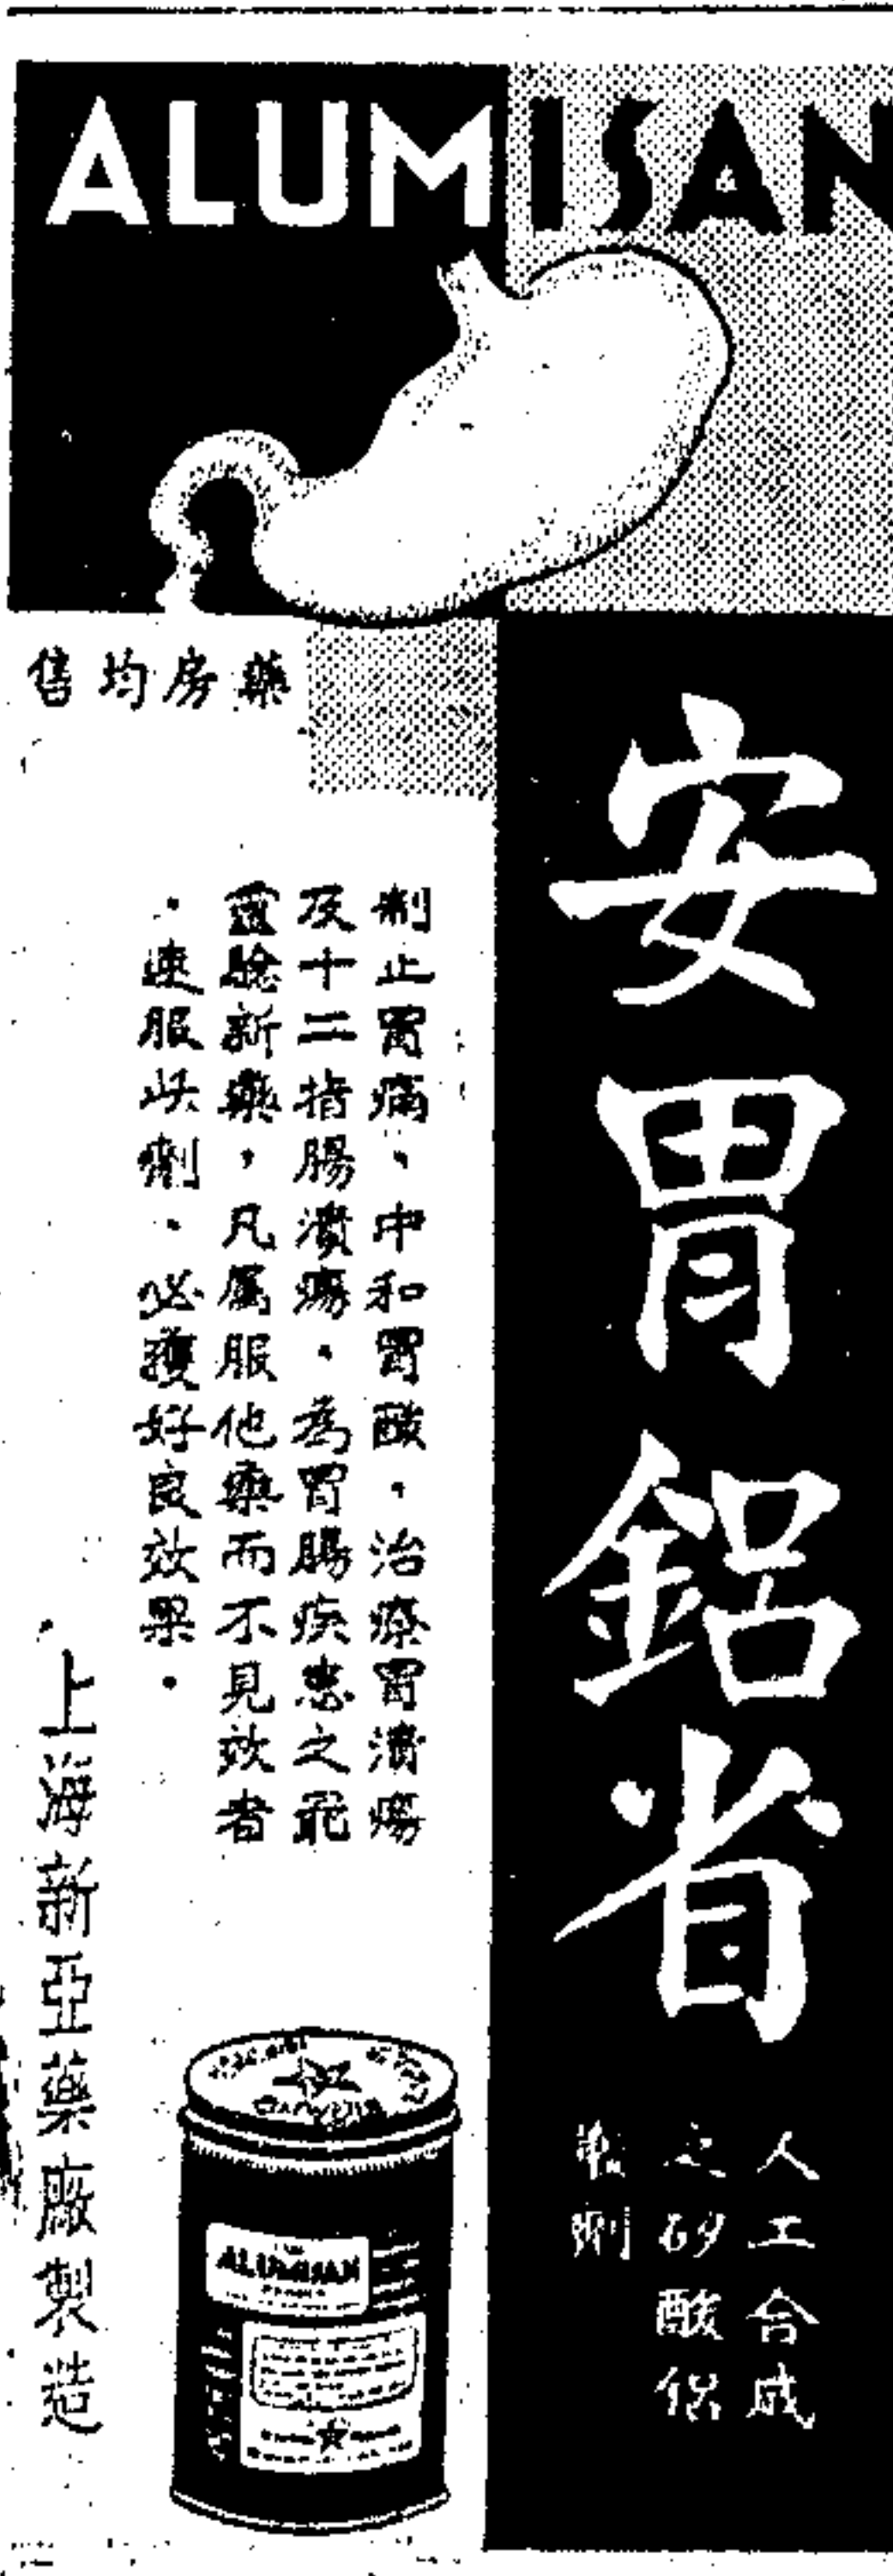 ALUMISAN
安胃鋁省
人工合成
之矽酸鋁
製劑
藥房均售
制止胃痛、中和胃酸・治療胃潰瘍
及十二指腸潰瘍・為胃腸疾患之
靈驗新藥，凡屬服他藥而不見效者
・速服此劑、必獲好良效果・
上海新亞藥廠製造
ALUMISAN